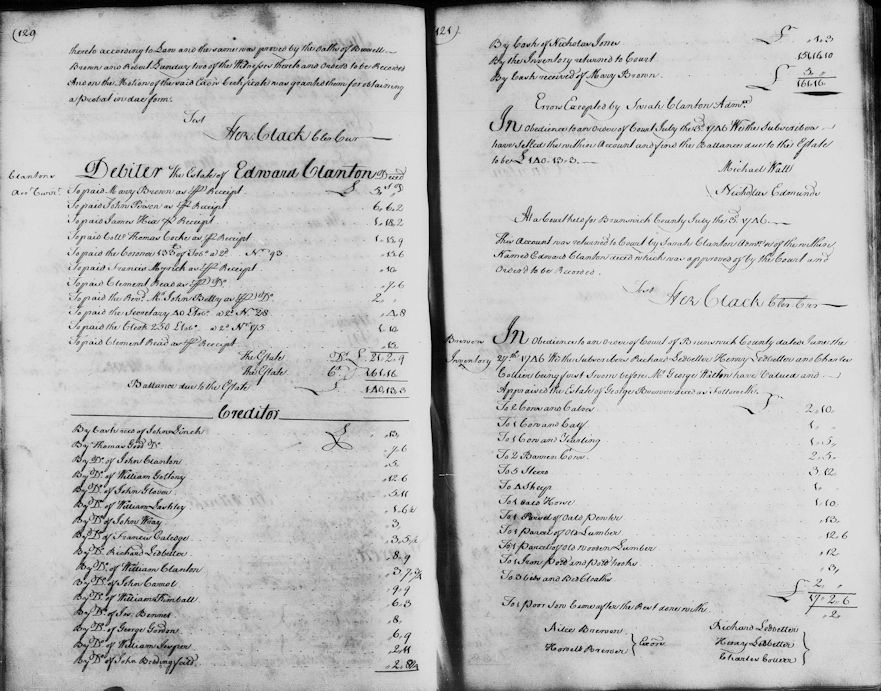 (120
thereto according to Law and the same was proved by the Oaths of Burwell
Brown and Robert Dunday two of the Witnesses thereto and Orderd to be Recorded
And on the Motion of the said Exōrs Certificate was granted them for obtaining
a Probat in due form.
Test
Ster: Clack Cler Cur
Clanton's
Acct Currt.
Debiter The Estate of Edward Clanton Deced
To paid Mary Brown as Pr Receipt £
To paid John Power as Pr Receipt 6,6,2
To paid James Hux Pr Receipt 1.18.2
To paid Collo Thomas Cocke as Pr Receipt 1.15.9
To paid the Coroner 133 of Tobo a 2d No 93 .13.6
To paid Francis Myrick as Pr Receipt .10
To paid Clement Read as Pr Do .7.6
To paid the Revd Mr John Betty as Pr Do 2 "
To paid the Secretary 40 lTobo a 2d No 28 .4.8
To paid the Clerk 250 lTobo a 2d No 175 1.10
To paid Clement Read as Pr Receipt .15
The Estate Dr £ 21.2.9
The Estate Cr 161.16
Ballance due to the Estate £ 140.13.3
Creditor
By Cash recd of John Linch £ .13
By Thomas Good Do .7.6
By Do of John Clanton .5
By Do of William Gottony .12.6
By Do of John Glover .5.11
By Do of William Lashley .1.6½
By Do of John Wray .3
By Do of Francis Oaledge .3.5½
By Do Richard Ledbetter .8.9
By Do of William Clanton
By Do of John Carnol .9.9
By Do of William Kimball .6.3
By Do of Jno. Bennet .8
By Do of George Gordon .6.9
By Do of William Jesper .2.11
By Do of John Beddingfeild
121)
By Cash of Nicholas Jones £ .1.3
By the Inventory returned to Court 151.16.10
By Cash received of Mary Brown
£ 161.16
Errors Excepted by Sarah Clanton Admx.
In Obedience to an Order of Court July the 3d 1746 We the Subscribers
have setled the within Account and find the Ballance due to the Estate
to be £ 140.13.3.
Michael Wall
Nicholas Edmunds
At a Court held for Brunswick County July the 3d 1746.
This Account was returned to Court by Sarah Clanton Admx of the within
Named Edward Clanton deced which was approved of by the Court and
Order'd to be Recorded.
Test Ster Clack Cler Cur
Brewer
Inventory
In Obedience to an Order of Court of Brunswick County dated June the
27th 1746 We the Subscribers Richard Ledbetter Henry Ledbetter and Charles
Collier being first Sworn before Mr George Walton have Valued and
Appraised the Estate of George Brewer deced as followeth.
To 2 Cows and Calves £ 2.10
To 1 Cow and Calf 1. "
To 1 Cow and Yearling 1.5
To 2 Barren Cows 2.5
To 5 Steers 3.12
To 4 Sheep 1.
To 1 oald Horse 1.10
To 1 Parcel of Oald Pewter .13
To 1 parcel of Old Lumber .12.6
To 1 Parcel of Old wooden Lumber .12
To 1 Iron Pott and Pott hooks .3
To 3 beds and Bed Cloaths £ 2. "
17.2.6
To 1 poor Sow Came after the Rest done with .2
Alice Brewer
Howell Brewer } Exōrs
Richard Ledbetter
Henry Ledbetter
Charles Collier